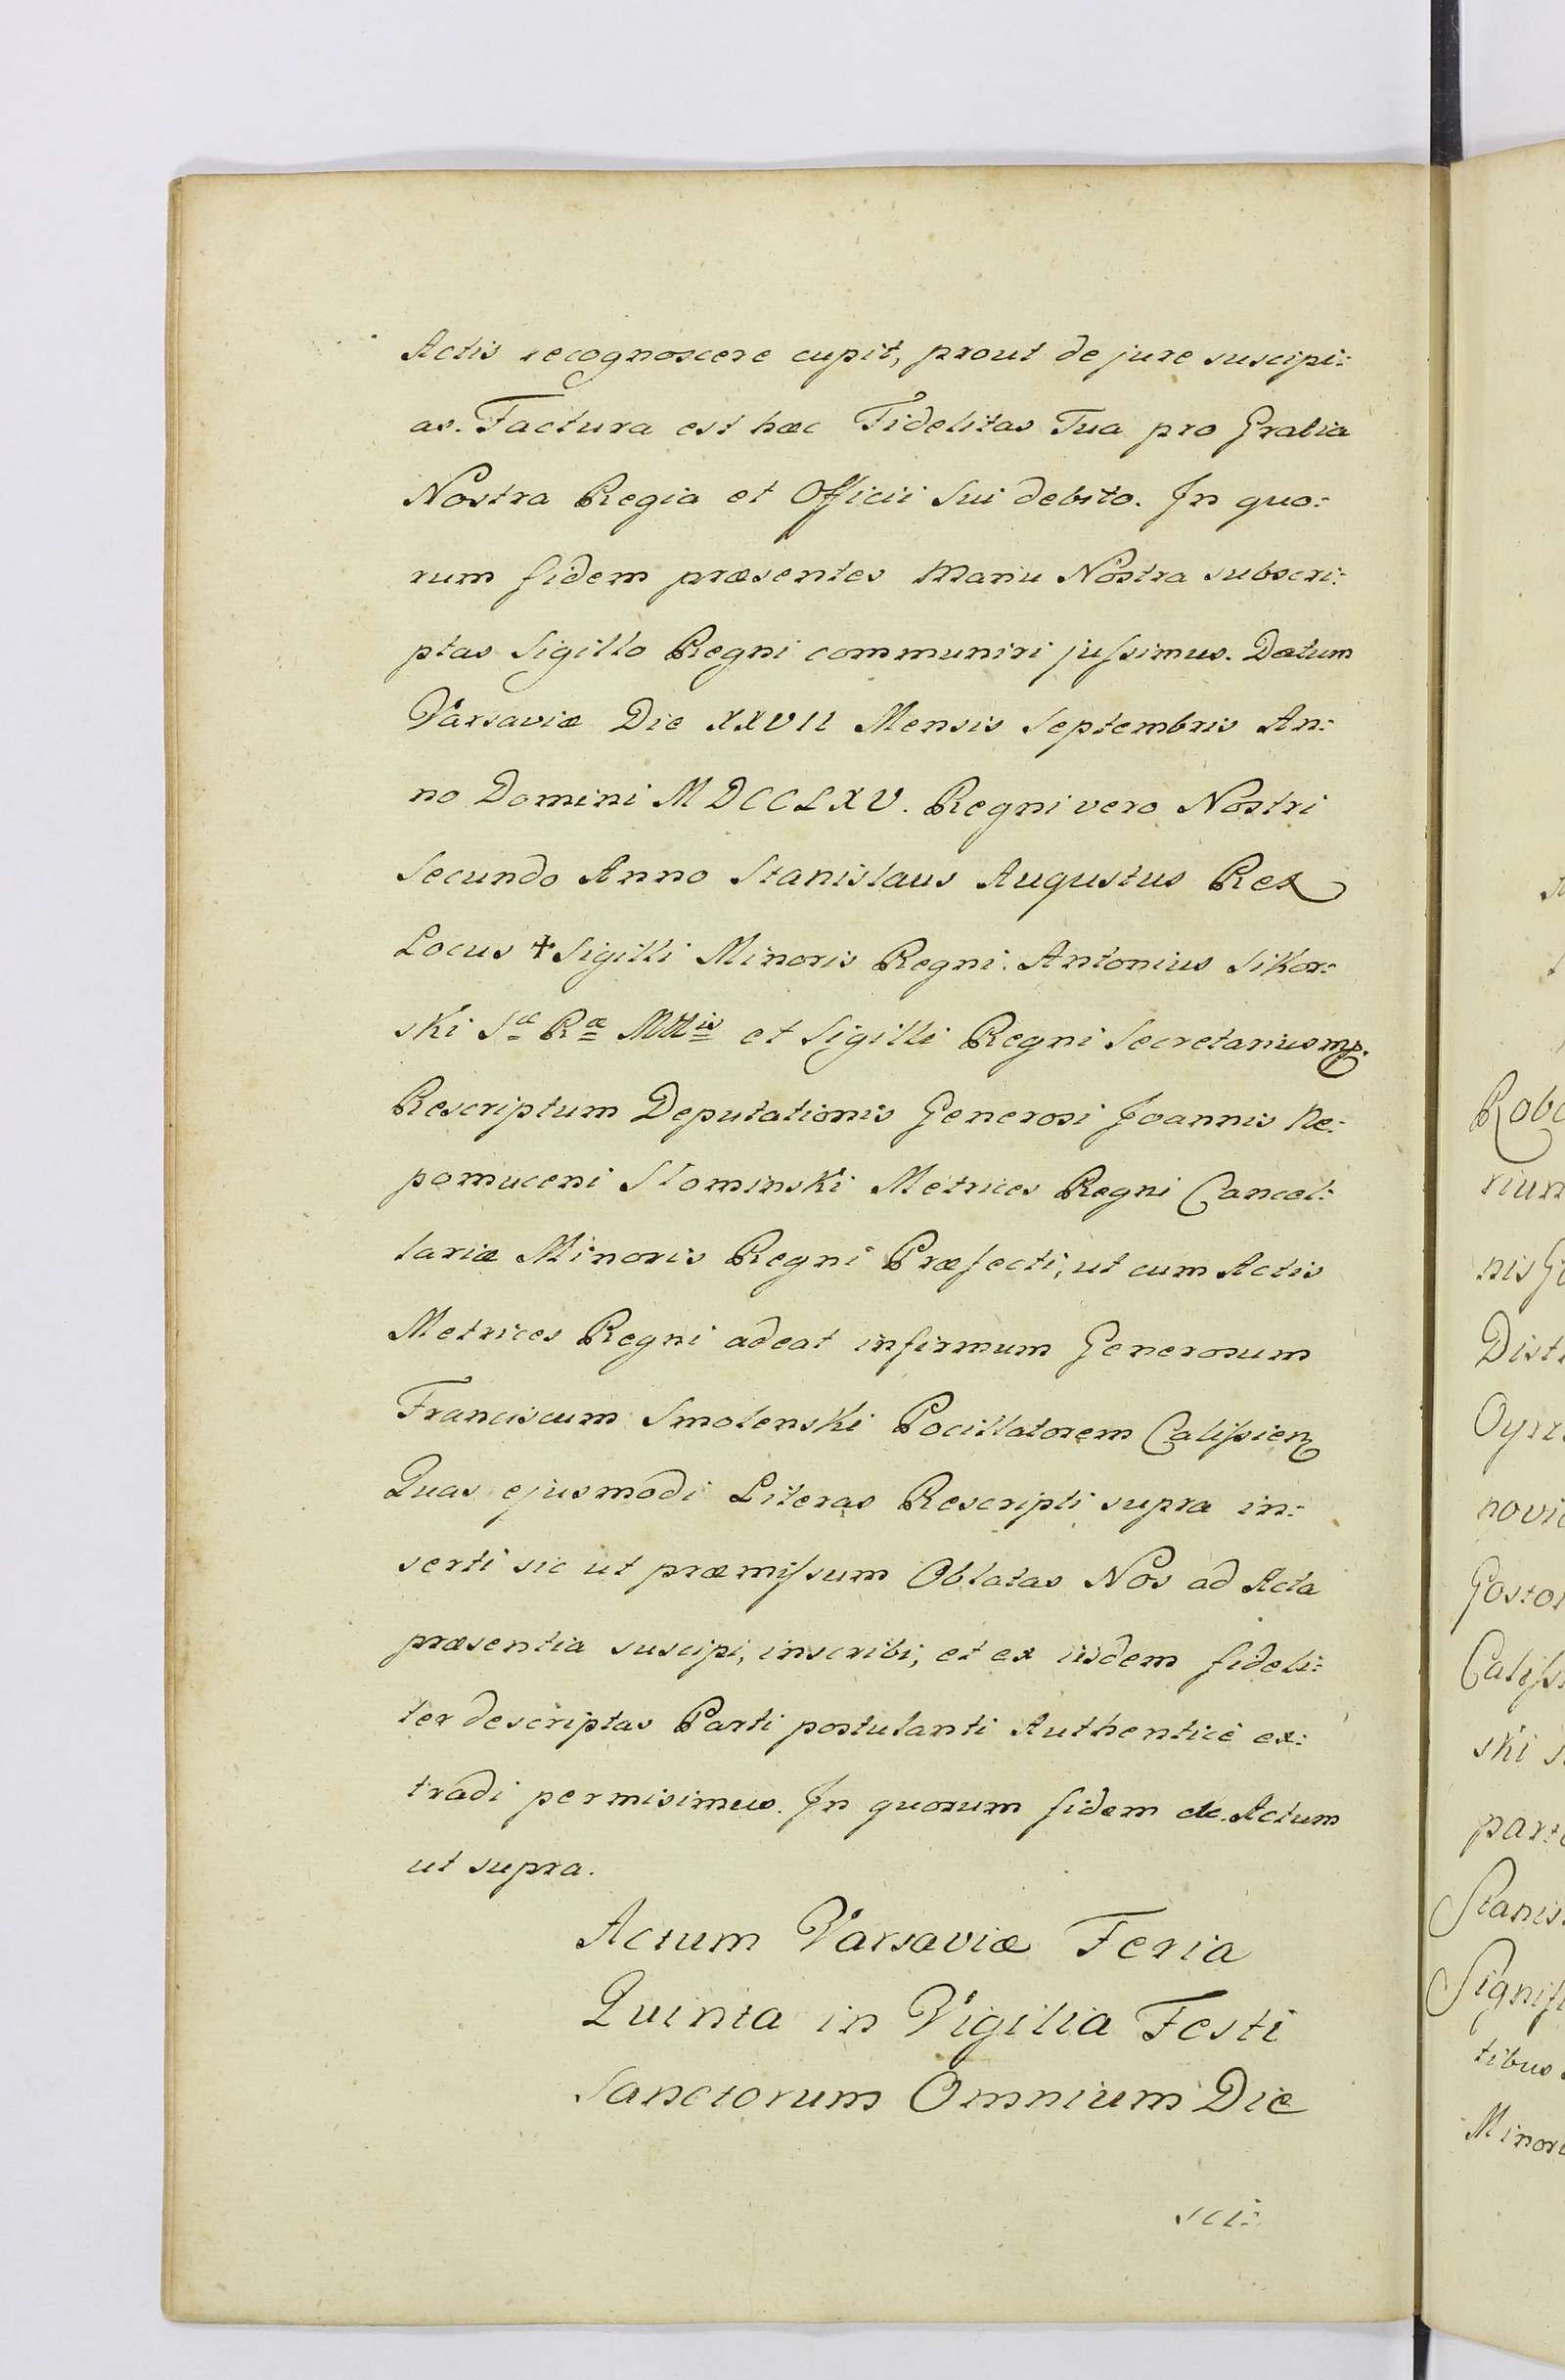 Actis recognoscere cupit, prout de jure suscipi:
as. Factura est hæc Fidelitas Tua pro Gratia
Nostra Regia et Officii Sui debito. In quo:
rum fidem præsentes Manu Nostra subscri:
ptas Sigillo Regni communiri jufsimus. Datum
Varsaviæ Die XXVII Mensis Septembris An:
no Domini MDCCLXV. Regni vero Nostri
Secundo Anno Stanislaus Augustus Rex
Locus ✝ Sigilli Minoris Regni. Antonius Sikor:
ski Sæ Ræ Mttis et Sigilli Regni Secretarius mp.
Rescriptum Deputationis Generosi Joannis Ne:
pomuceni Slominski Metrices Regni Cancel:
lariæ Minoris Regni Præfecti, ut cum Actis
Metrices Regni adeat infirmum Generosum
Franciscum Smolenski Pocillatorem Califsien
Quas ejusmodi Literas Rescripti supra in:
serti sic ut præmifsum Oblatas Nos ad Acta
præsentia suscipi, inscribi, et ex iisdem fideli:
ter descriptas Parti postulanti Authenticè ex:
tradi permisimus. In quorum fidem etc. Actum
ut supra.
Actum Varsaviæ Feria
Quinta in Vigilia Festi
Sanctorum Omnium Die
sci:
Rob
rium
nis G
Dist
Oyrz
novi
Gosto
Califs
ski
part
Stanis
Signifi
tibus
Minor